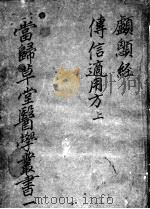 顱顖經
傳信適用方上
當歸草堂醫學叢書一